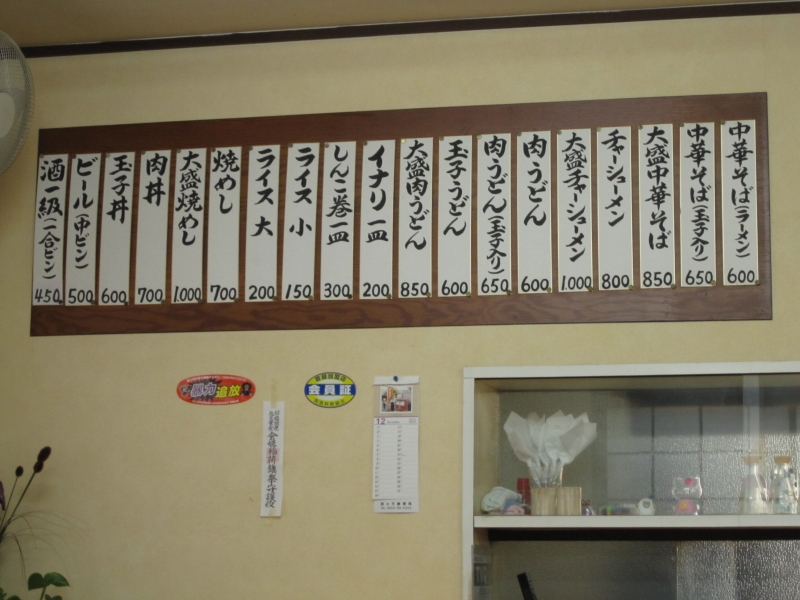 中華そば(ラーメン) 600
中華そば(玉子入り) 650
大盛中華そば 850
チャーシューメン 800
大盛チャーシューメン 1.000
肉うどん 600
肉うどん(玉子入り) 650
玉子うどん 600
大盛肉うどん 850
イナリ一皿 200
しんこ巻一皿 300
ライス 小 150
ライス 大 200
焼めし 700
大盛焼めし 1.000
肉丼 700
玉子丼 600
ビール(中ビン) 500
酒一級(一合ビン) 450
暴力追放
会員証
12